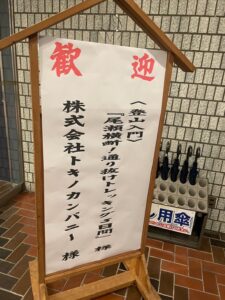 歓迎
〈登山入門〉
『尾瀬横断！通り抜けトレッキング2日間』 様
株式会社トキノカンパニー 様
用傘